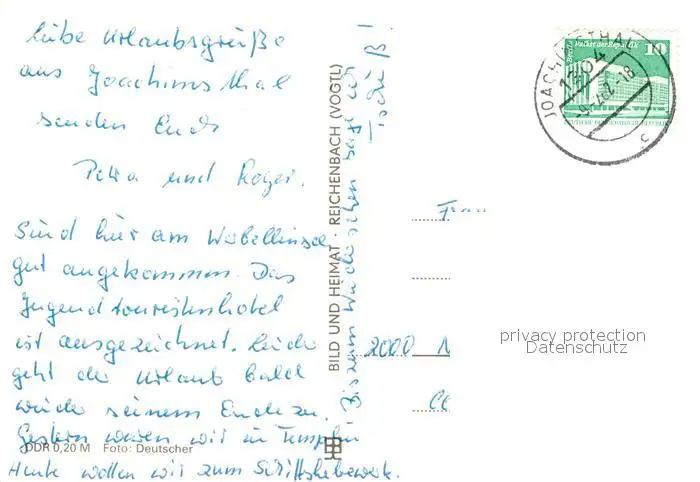 Liebe Urlaubsgrüße
aus Joachimsthal
senden Euch
Petra und Roger.
Sind hier am Werbellinsee
gut angekommen. Das
Jugendtouristenhotel
ist ausgezeichnet. Leider
geht der Urlaub bald
wieder seinem Ende zu.
Gestern waren wir in Templin
Heute wollen wir zum Schiffshebewerk.
Bis zum Wiedersehen sage ich
Tschüß!
BILD UND HEIMAT · REICHENBACH (VOGTL)
DDR 0,20 M Foto: Deutscher
Berlin Palast der Republik 10
JOACHIMSTHAL
1304
c
Frau
2000 N
privacy protection
Datenschutz